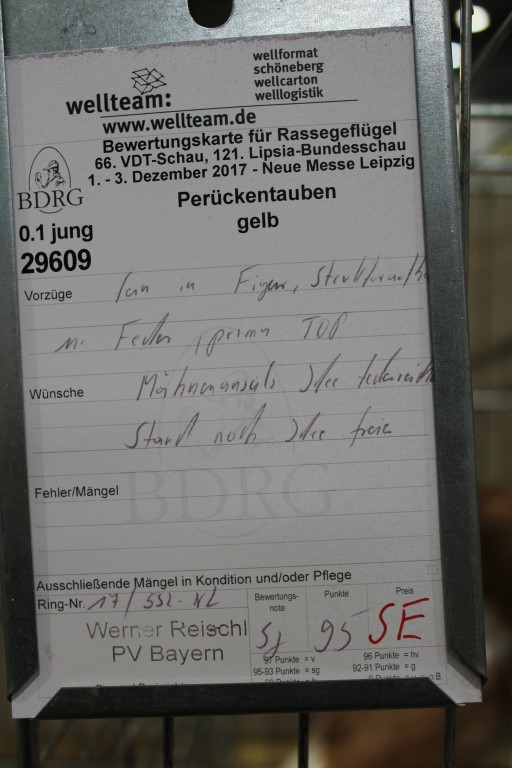 wellteam:
wellformat
schöneberg
wellcarton
welllogistik
www.wellteam.de
Bewertungskarte für Rassegeflügel
66. VDT-Schau, 121. Lipsia-Bundesschau
1. - 3. Dezember 2017 - Neue Messe Leipzig
BDRG
Perückentauben
gelb
0.1 jung
29609
Vorzüge in Figur,
Feder, prima TOP
Wünsche Mähnenansatz
Stand noch freie
Fehler/Mängel
BDRG
Ausschließende Mängel in Kondition und/oder Pflege
Ring-Nr. 17/552-NL
Werner Reischl
PV Bayern
Bewertungs-
note
Sg
Punkte
95
Preis
SE
97 Punkte = v
96 Punkte = hv
95-93 Punkte = sg
92-91 Punkte = g